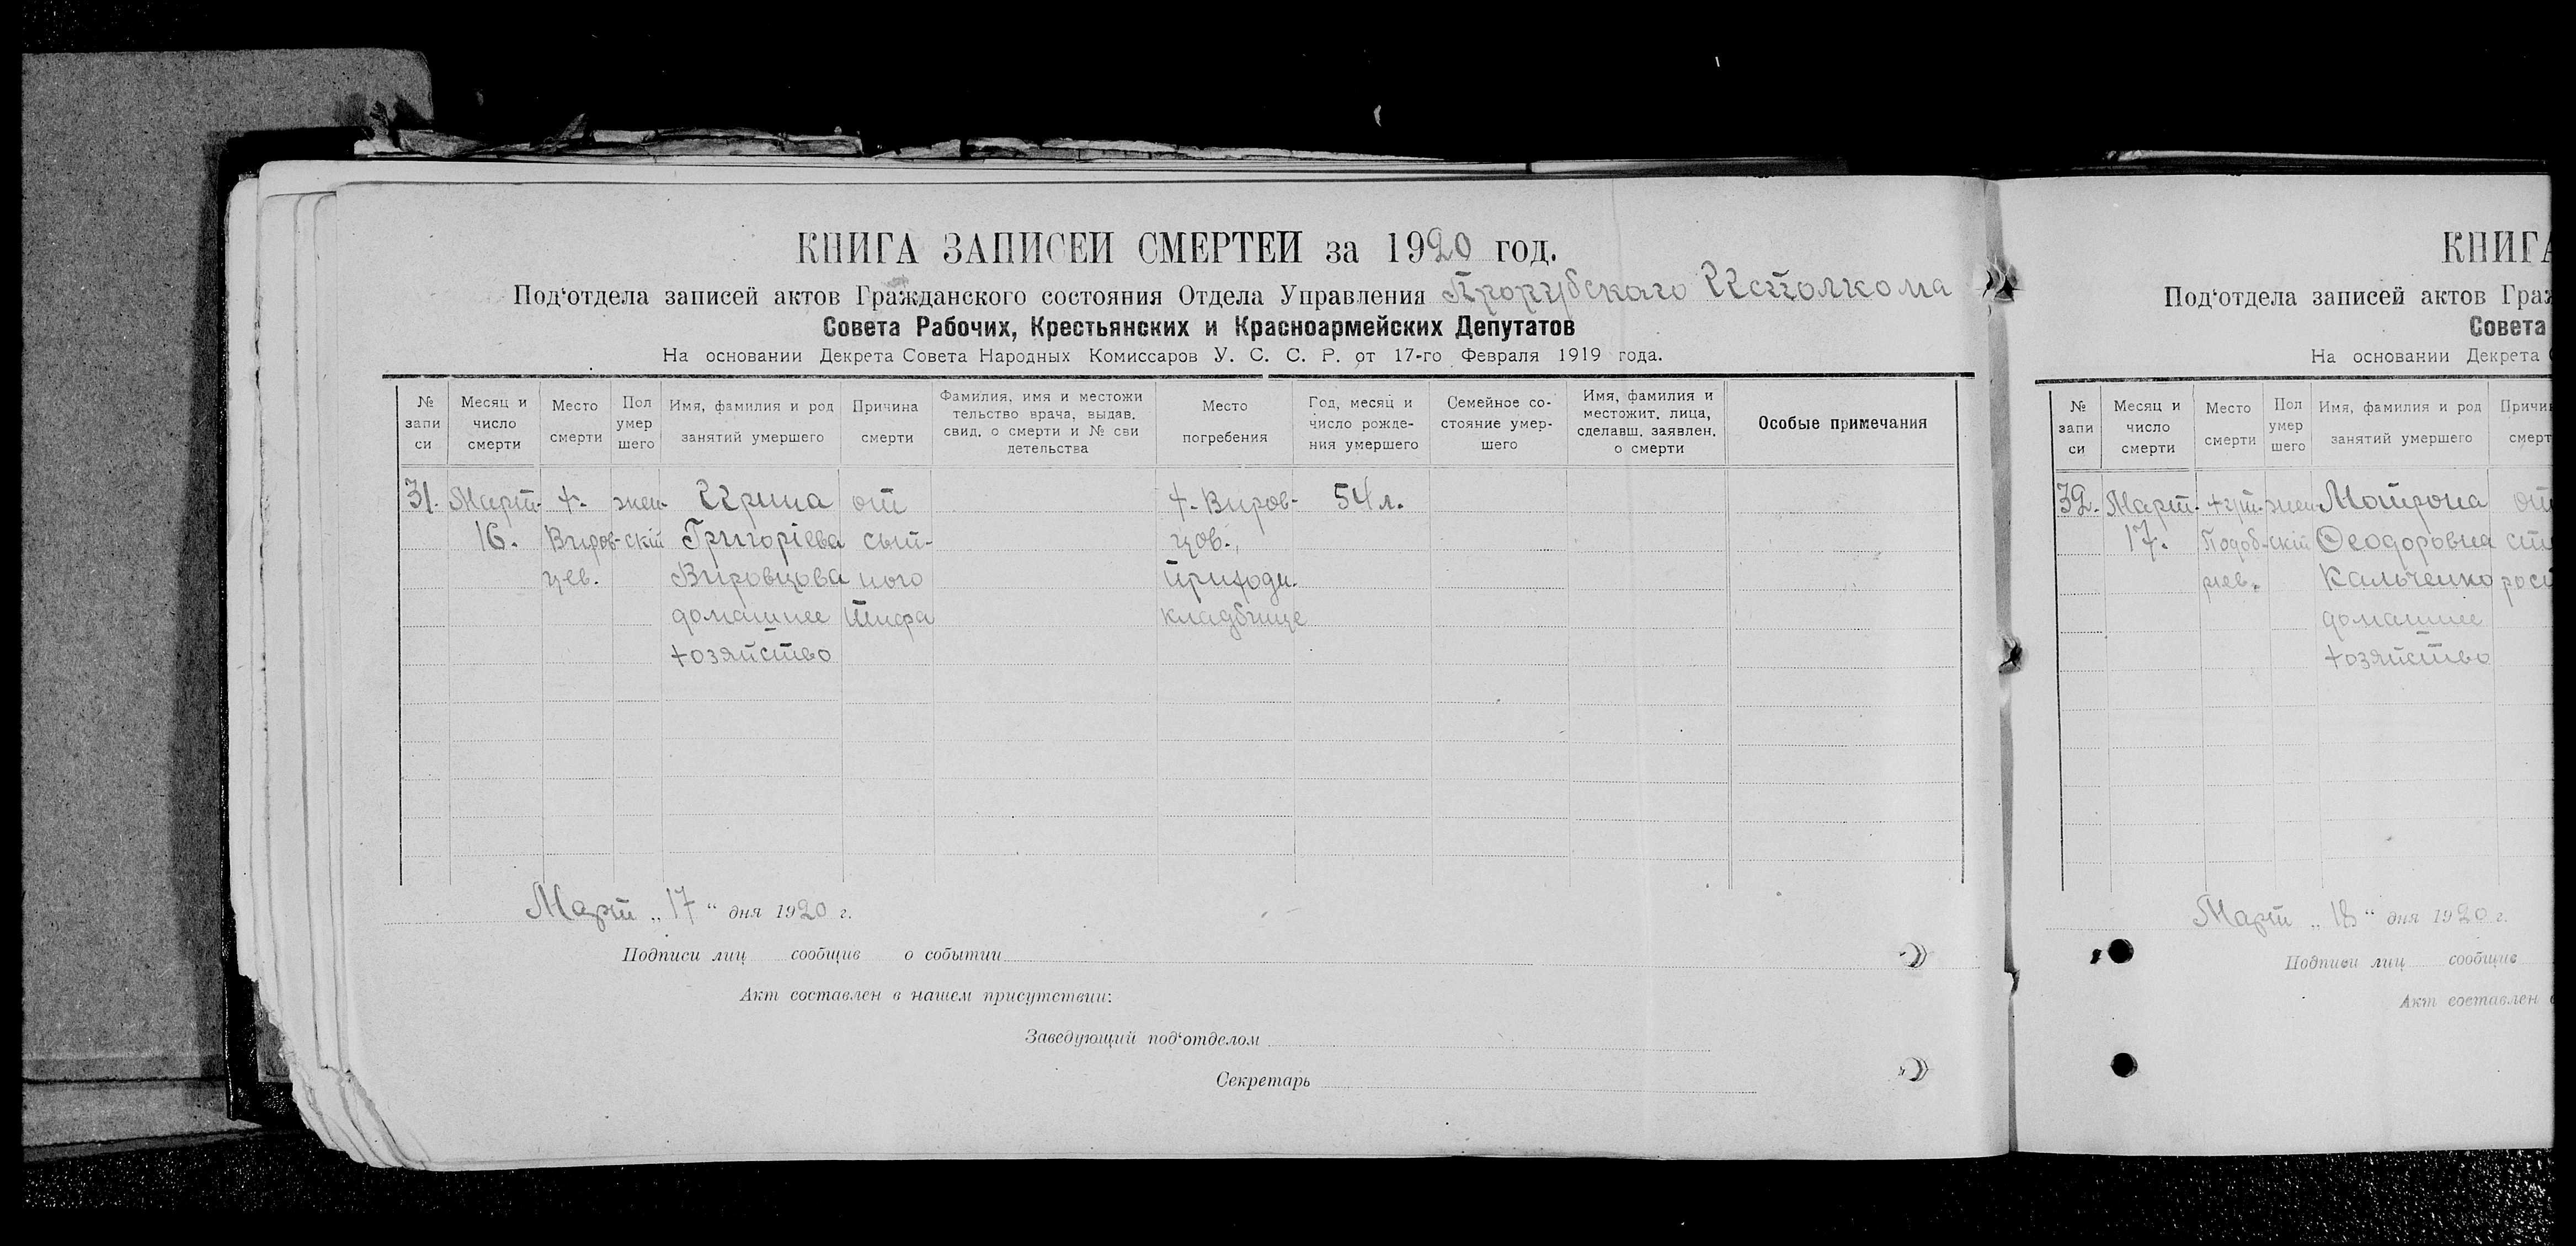 КНИГА ЗАПИСЕЙ СМЕРТЕЙ за 1920 год.
Под‘отдела записей актов Гражданского состояния Отдела Управления Прорубского Исполкома
Совета Рабочих, Крестьянских и Красноармейских Депутатов
На основании Декрета Совета Народных Комиссаров У. С. С. Р. от 17-го Февраля 1919 года.
№ запи си
Месяц и число смерти
Место смерти
Пол умер шего
Имя, фамилия и род занятий умершего
Причина смерти
Фамилия, имя и местожи тельство врача, выдав. свид. о смерти и № сви детельства
Место погребения
Год, месяц и число рожде- ния умершего
Семейное со- стояние умер- шего
Имя, фамилия и местожит. лица, сделавш. заявлен. о смерти
Особые примечания
31. Март. х. жен- Ирина от х. Виров- 54 л.
16. Виров- скій Григоріева сып- цов.,
цев. Вировцова ного приходс.
домашнее тифа кладбище
хозяйство
Март „17“ дня 1920 г.
Подписи лиц сообщив о событии
Акт составлен в нашем присутствии:
Заведующий под‘отделом
Секретарь
КНИГА
Под‘отдела записей актов Граж
Совета
На основании Декрета С
№ запи си
Месяц и число смерти
Место смерти
Пол умер шего
Имя, фамилия и род занятий умершего
Причин смерт
32. Март. хут. жен- Матрона от
17. скій Феодоровна ста
Кальченко рост
домашнее
хозяйство
Март „18“ дня 1920 г.
Подписи лиц сообщив
Акт составлен в